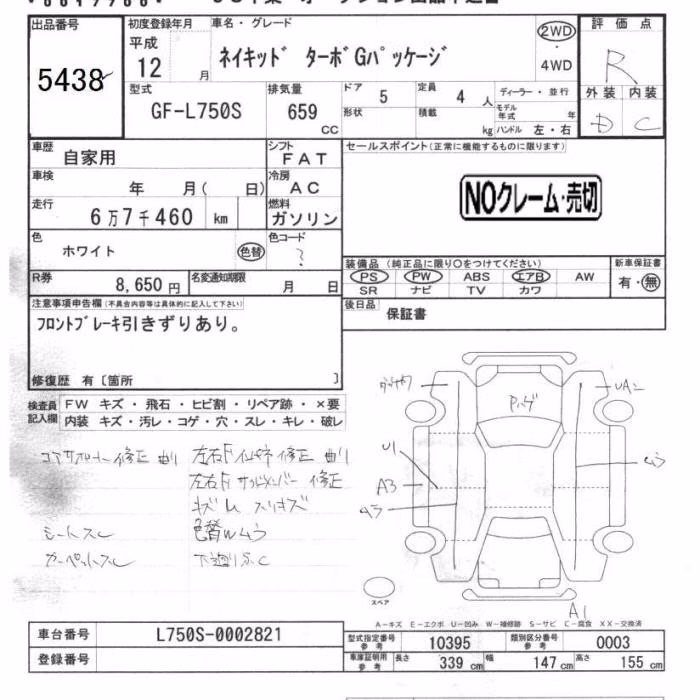 出品番号 初度登録年月 車名・グレード 評価点
5438 平成 12 月 ネイキッド ターボGパッケージ 2WD ・ 4WD R
型式 排気量 ドア 5 定員 4 人 ディーラー・並行 外装 内装
GF-L750S 659 cc 形状 積載 kg モデル年式 年 ハンドル 左・右 D C
車歴 自家用 シフト FAT セールスポイント(正常に機能するものに限ります)
車検 年 月( 日) 冷房 AC
NOクレーム・売切
走行 6万7千460 km 燃料 ガソリン
色 ホワイト 色替 色コード ?
装備品 (純正品に限り○をつけてください) 新車保証書
R券 8,650 円 名変通知期限 月 日 PS PW ABS エアB AW 有・無
SR ナビ TV カワ
注意事項申告欄(不具合内容等は具体的に記入して下さい) 後日品 保証書
フロントブレーキ引きずりあり。
修復歴 有〔箇所 〕
検査員記入欄 FW キズ・飛石・ヒビ割・リペア跡・×要
内装 キズ・汚レ・コゲ・穴・スレ・キレ・破レ
コアサポート修正 曲り 左右Fインサイド修正 曲り
左右Fサイドメンバー修正
キズ レ スリキズ
シートスレ 色替Wムラ
下廻りS.C
UA2
U1
A3
A1
スペア
A－キズ E－エクボ U－凹み W－補修跡 S－サビ C－腐食 XX－交換済
車台番号 L750S-0002821 型式指定番号 参考 10395 類別区分番号 参考 0003
登録番号 車庫証明用 参考 長さ 339 cm 幅 147 cm 高さ 155 cm